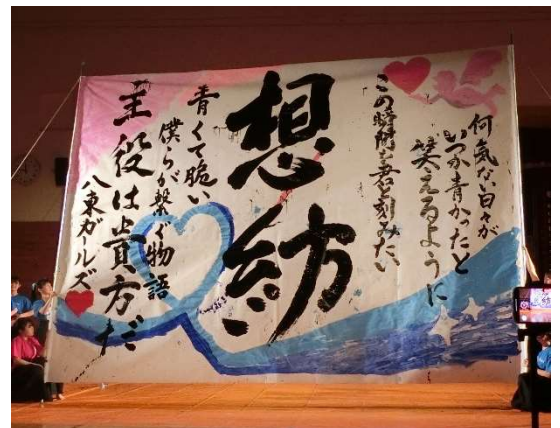 何気ない日々が
いつか青かったと
笑えるように
この時間を君と刻みたい
想紡
青くて脆い
僕らが繋ぐ物語
主役は貴方だ
八東ガールズ